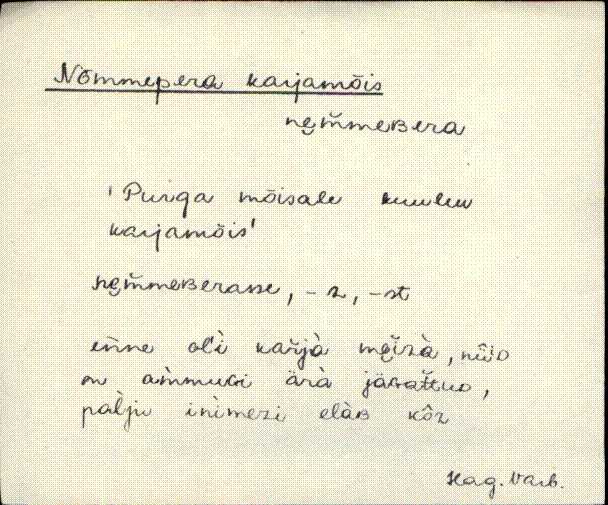 Nõmmepera karjamõis
ne̮m̆meʙera
'Purga mõisale kuuluv
karjamõis'
ne̮m̆meʙerasse, -z, -st
en̆ne ol'ì kaŕjà me̮ĭzà, nüìᴅ
on am̆muɢi ärà jäɢaᴛtuᴅ,
palju inìmezi elàʙ kôz
Hag. Varb.